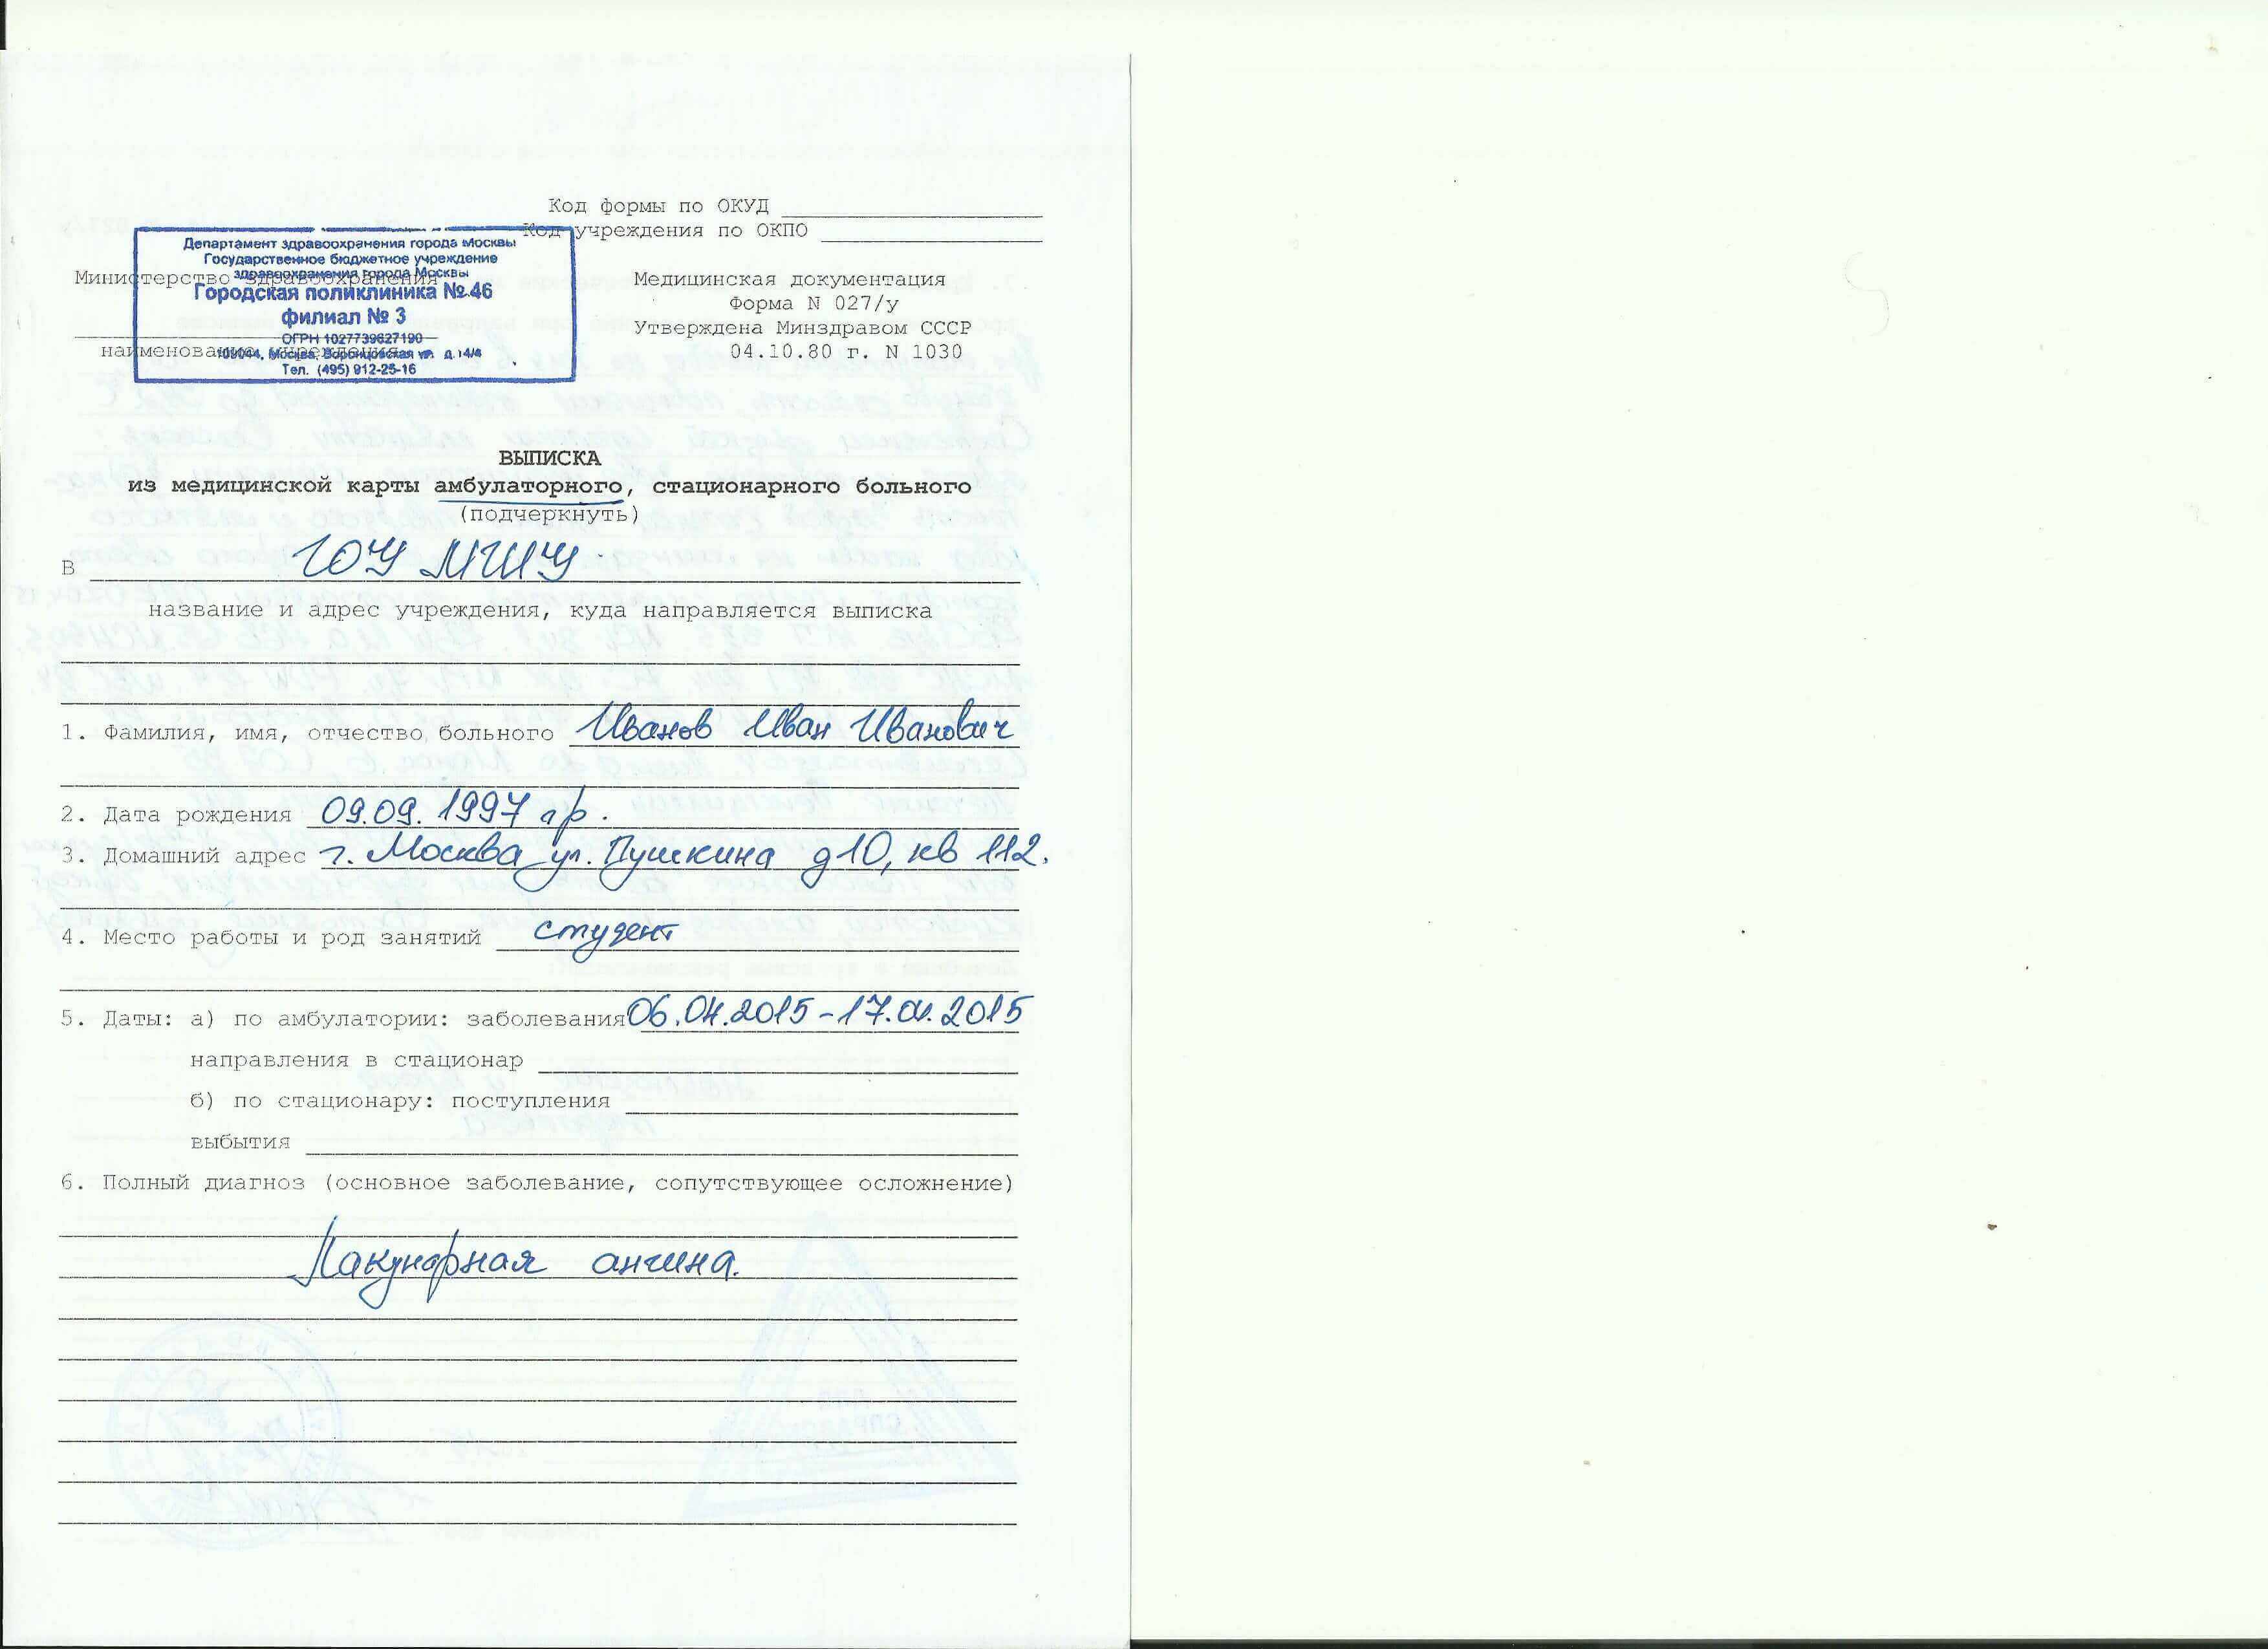 Код формы по ОКУД
Код учреждения по ОКПО
Департамент здравоохранения города Москвы
Государственное бюджетное учреждение
здравоохранения города Москвы
Городская поликлиника № 46
филиал № 3
ОГРН 1027739627190
109044, Москва, Воронцовская ул. д. 14/4
Тел. (495) 912-25-16
Министерство здравоохранения
наименование учреждения
Медицинская документация
Форма N 027/у
Утверждена Минздравом СССР
04.10.80 г. N 1030
ВЫПИСКА
из медицинской карты амбулаторного, стационарного больного
(подчеркнуть)
В ГОУ
название и адрес учреждения, куда направляется выписка
1. Фамилия, имя, отчество больного Иванов Иван Иванович
2. Дата рождения 09.09.1997 г/р.
3. Домашний адрес г. Москва ул. Пушкина д 10, кв 112.
4. Место работы и род занятий студент
5. Даты: а) по амбулатории: заболевания 06.04.2015-17.04.2015
направления в стационар
б) по стационару: поступления
выбытия
6. Полный диагноз (основное заболевание, сопутствующее осложнение)
Лакунарная ангина.